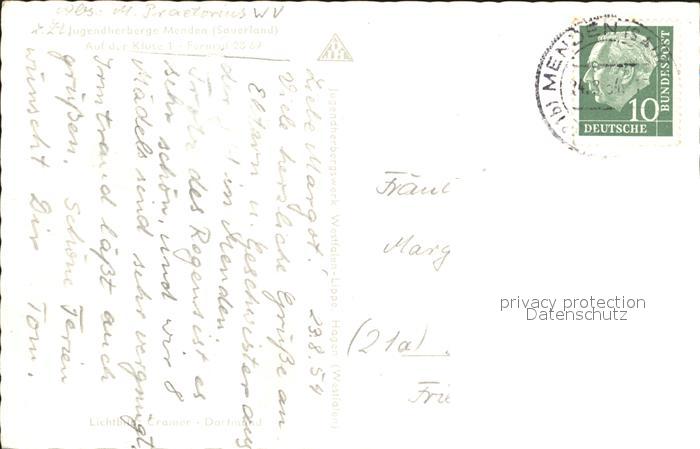 Abs: M. Praetorius WV
z. Zt. Jugendherberge Menden (Sauerland)
Auf der Kluse 1 - Fernruf 28 67
Liebe Margot! 23.8.54
Viele herzliche Grüße an
Eltern u. Geschwister aus
der in Menden
Trotz des Regens ist es
sehr schön, und wir 8
Mädels sind sehr vergnügt.
Irmtraud läßt auch
grüßen. Schöne Ferien
wünscht Dir Toni.
Lichtbild: Cramer - Dortmund
Jugendherbergswerk Westfalen-Lippe Hagen (Westfalen)
MENDEN (SAUERL
(21b)
10
DEUTSCHE
BUNDESPOST
Fräul
Marg
(21a)
Frie
privacy protection
Datenschutz